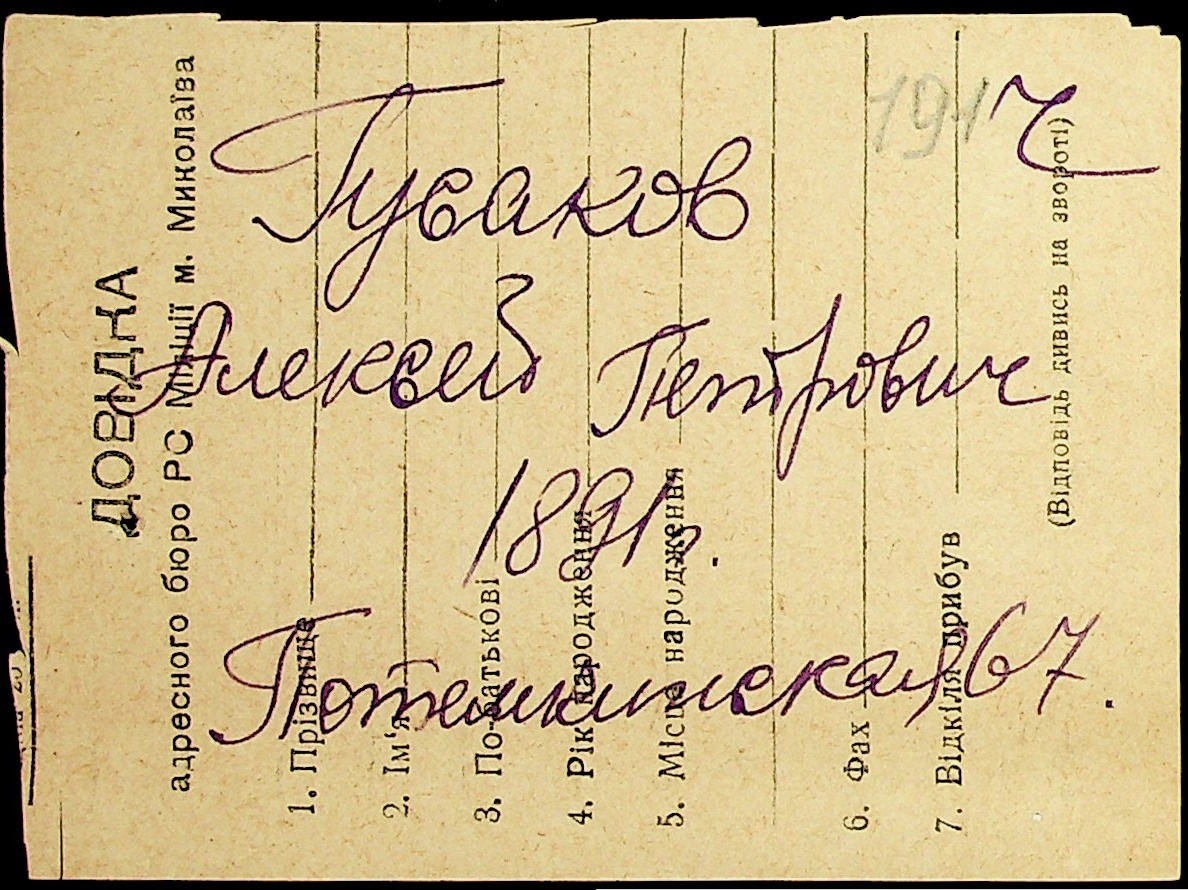 ДОВІДКА
адресного бюро РС Міліції м. Миколаїва
1. Прізвище
2. Ім'я
3. По-батькові
4. Рік народження
5. Місце народження
6. Фах
7. Відкіля прибув
(Відповідь дивись на звороті)
Гусаков
Алексей Петрович
1891г.
Потемкинская, 67.
191